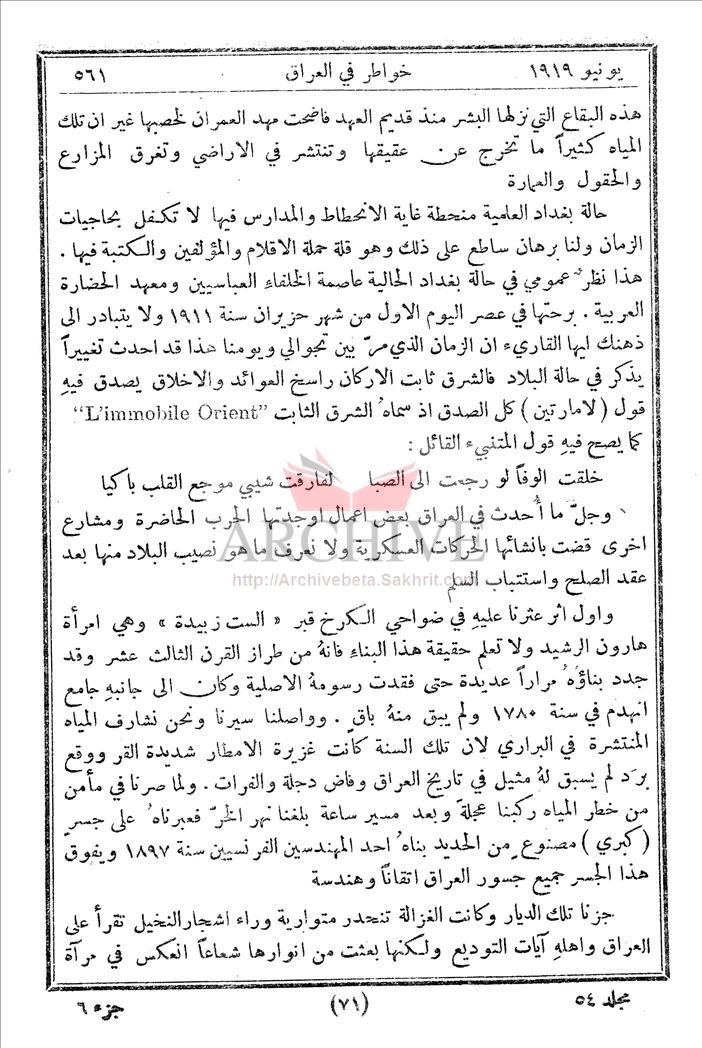 يونيو ١٩١٩ خواطر في العراق ٥٦١
هذه البقاع التي نزلها البشر منذ قديم العهد فاضحت مهد العمران لخصبها غير ان تلك
المياه كثيراً ما تخرج عن عقيقها وتنتشر في الاراضي وتغرق المزارع
والحقول والعمارة
حالة بغداد العلمية منحطة غاية الانحطاط والمدارس فيها لا تكفل بحاجيات
الزمان ولنا برهان ساطع على ذلك وهو قلة حملة الاقلام والمؤلفين والكتبة فيها .
هذا نظر عمومي في حالة بغداد الحالية عاصمة الخلفاء العباسيين ومعهد الحضارة
العربية . برحتها في عصر اليوم الاول من شهر حزيران سنة ١٩١١ ولا يتبادر الى
ذهنك ايها القاريء ان الزمان الذي مرّ بين تجوالي ويومنا هذا قد احدث تغييراً
يذكر في حالة البلاد فالشرق ثابت الاركان راسخ العوائد والاخلاق يصدق فيهِ
قول ( لامارتين ) كل الصدق اذ سماهُ الشرق الثابت “L'immobile Orient”
كما يصح فيهِ قول المتنبيء القائل :
خلقت الوفاً لو رجعت الى الصبا لفارقت شيبي موجع القلب باكيا
وجلّ ما أُحدث في العراق بعض اعمال اوجدتها الحرب الحاضرة ومشارع
اخرى قضت بانشائها الحركات العسكرية ولا نعرف ما هو نصيب البلاد منها بعد
عقد الصلح واستتباب السلم
واول اثر عثرنا عليهِ في ضواحي الكرخ قبر « الست زبيدة » وهي امرأة
هارون الرشيد ولا تعلم حقيقة هذا البناء فانهُ من طراز القرن الثالث عشر وقد
جدد بناؤهُ مراراً عديدة حتى فقدت رسومهُ الاصلية وكان الى جانبهِ جامع
انهدم في سنة ١٧٨٠ ولم يبق منهُ باقٍ . وواصلنا سيرنا ونحن نشارف المياه
المنتشرة في البراري لان تلك السنة كانت غزيرة الامطار شديدة القر ووقع
برَد لم يسبق لهُ مثيل في تاريخ العراق وفاض دجلة والفرات . ولما صرنا في مأمن
من خطر المياه ركبنا عجلةً وبعد مسير ساعة بلغنا نهر الخرّ فعبرناهُ على جسرٍ
( كبري ) مصنوعٍ من الحديد بناهُ احد المهندسين الفرنسيين سنة ١٨٩٧ ويفوق
هذا الجسر جميع جسور العراق اتقاناً وهندسة
جزنا تلك الديار وكانت الغزالة تنحدر متوارية وراء اشجار النخيل تقرأ على
العراق واهلهِ آيات التوديع ولكنها بعثت من انوارها شعاعاً انعكس في مرآة
مجلد ٥٤ (٧١) جزء ٦
ARCHIVE
http://Archivebeta.Sakhrit.com